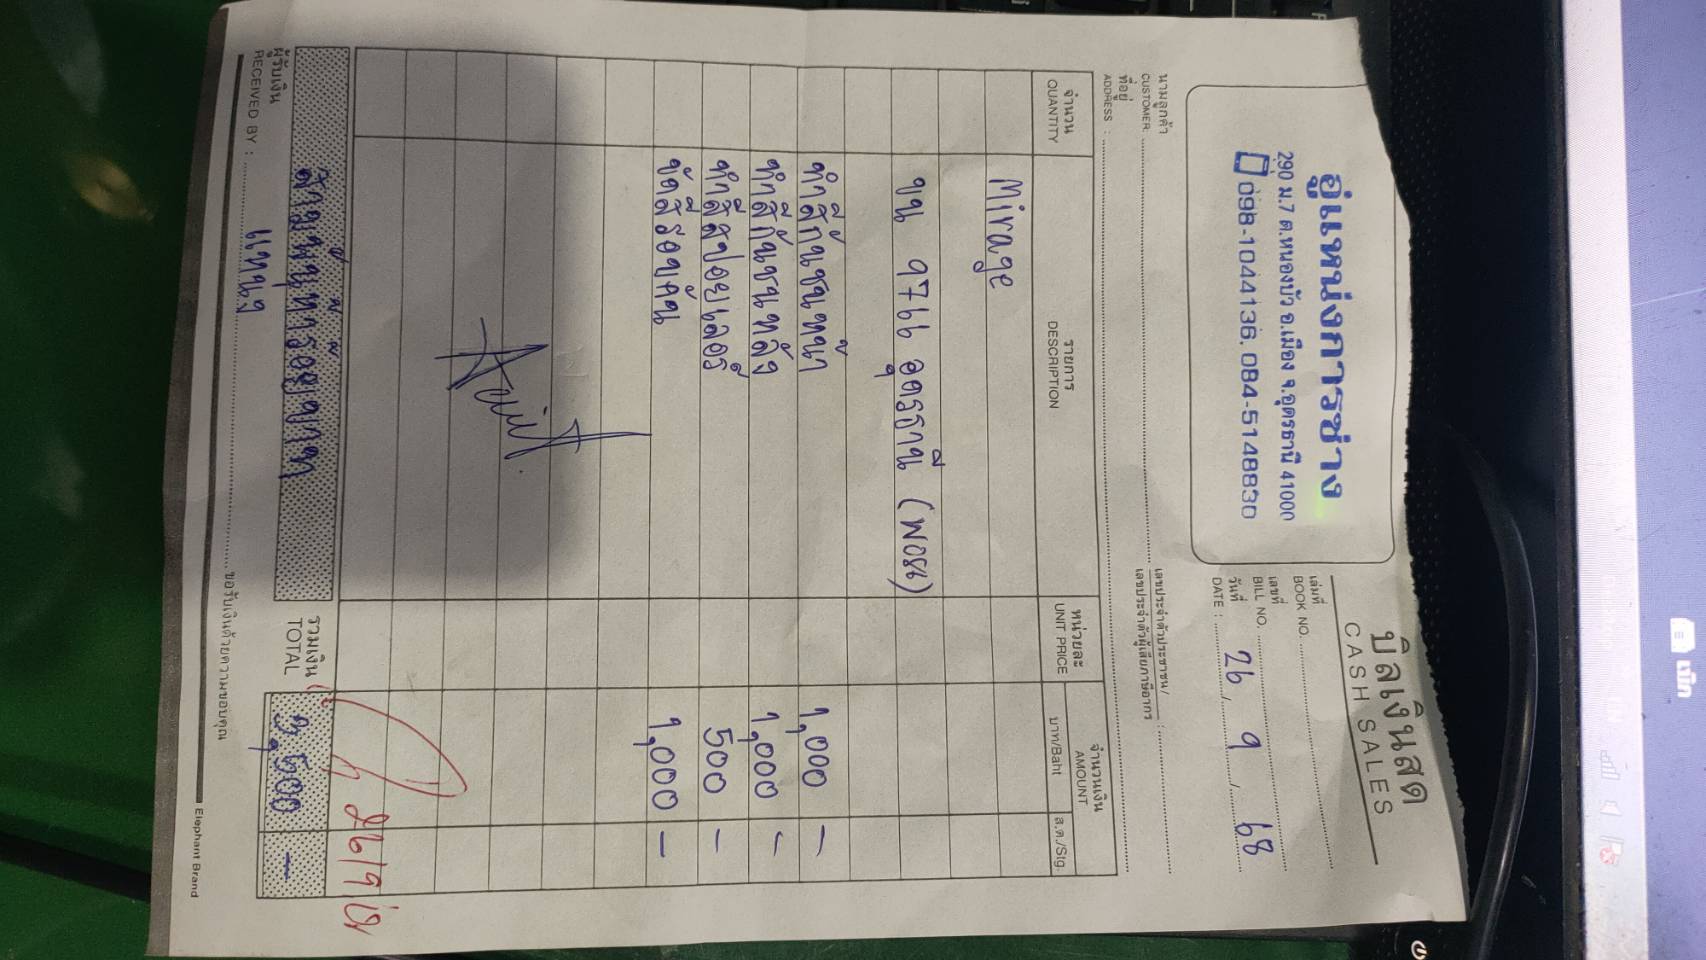 อู่แหน่งการช่าง
290 ม.7 ต.หนองบัว อ.เมือง จ.อุดรธานี 41000
098-1044136, 084-5148830
บิลเงินสด
CASH SALES
เล่มที่
BOOK NO.
เลขที่
BILL NO.
วันที่
DATE : 26 / 9 / 68
นามลูกค้า
CUSTOMER:
ที่อยู่
ADDRESS :
เลขประจำตัวประชาชน/
เลขประจำตัวผู้เสียภาษีอากร :
จำนวน
QUANTITY
รายการ
DESCRIPTION
หน่วยละ
UNIT PRICE
จำนวนเงิน
AMOUNT
บาท/Baht ส.ต./Stg.
Mirage
ขน 9766 อุดรธานี (พอร์น)
ทำสีกันชนหน้า 1,000 –
ทำสีกันชนหลัง 1,000 –
ทำสีสปอยเลอร์ 500 –
ขัดสีรอบคัน 1,000 –
26/9/68
สามพันห้าร้อยบาท
รวมเงิน
TOTAL
3,500 –
ผู้รับเงิน
RECEIVED BY :
ขอรับเงินด้วยความขอบคุณ
Elephant Brand
พัก